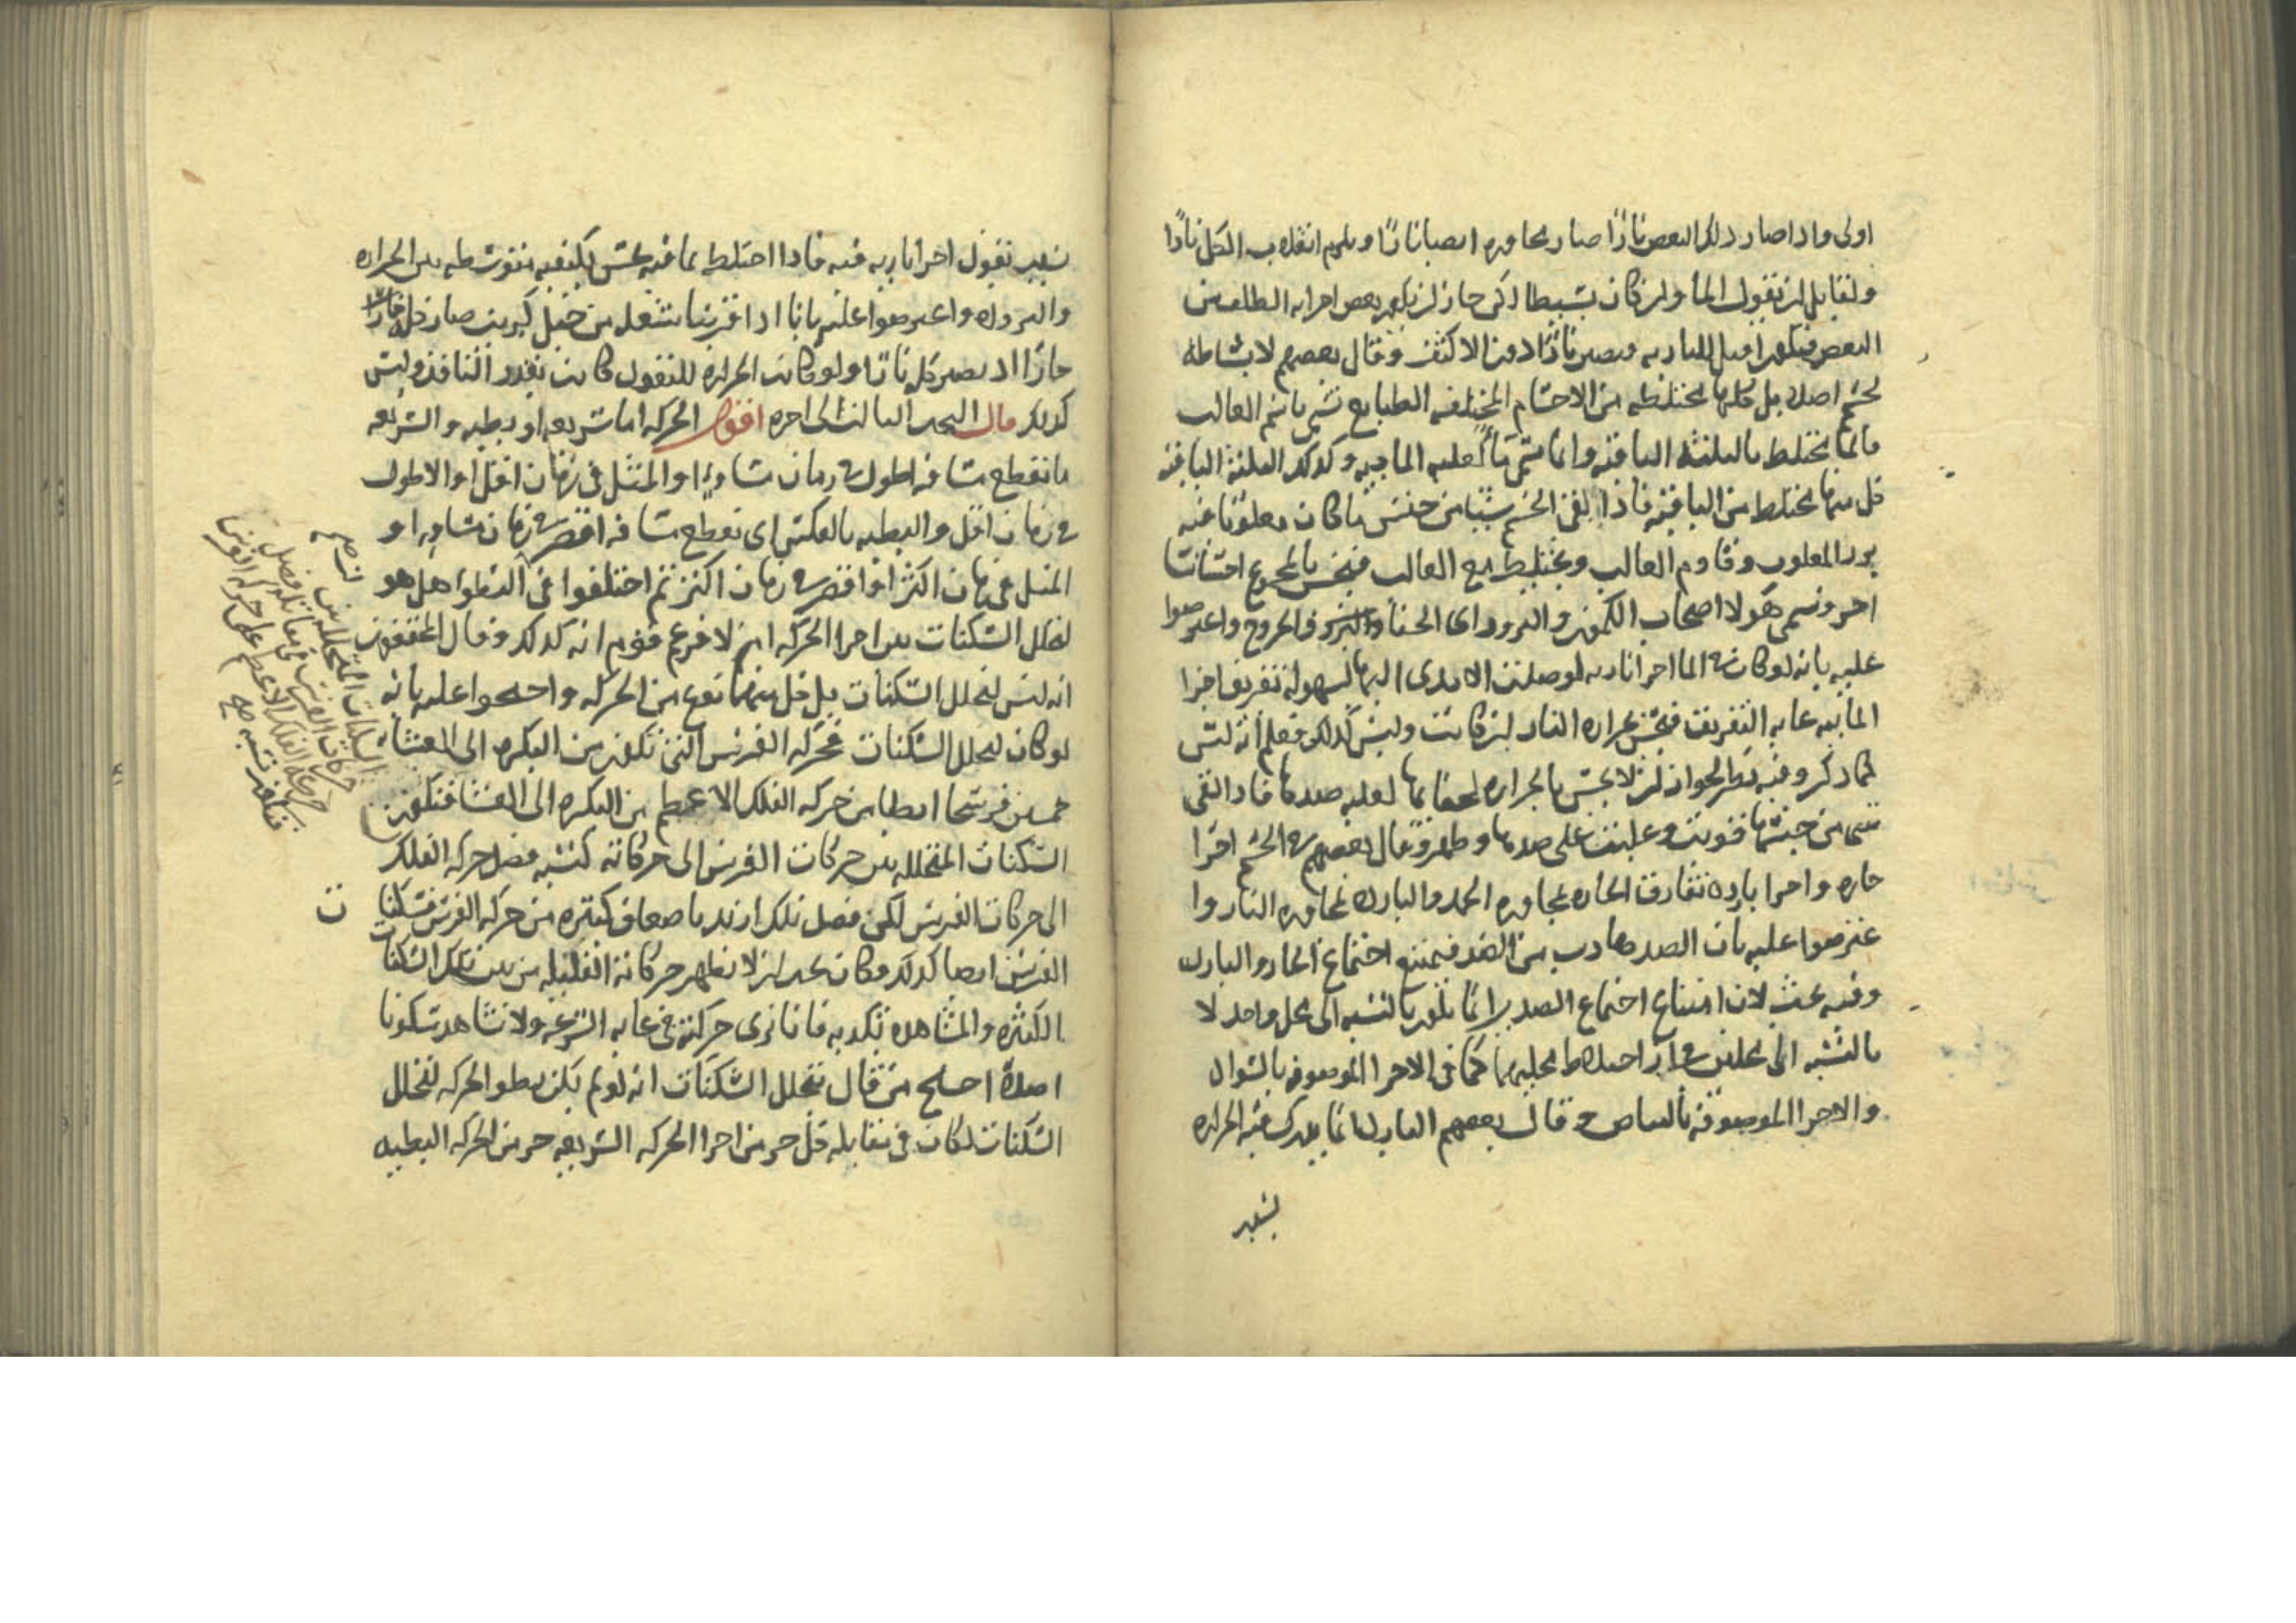 اولى واذا صار ذلك البعض نارًا صار مجاوره ايضا نارًا ويلزم انقلاب الكل نارًا
ولقايل ان يقول الما وان كان بسيطا لكن جاز ان يكون بعض اجزايه الطف من
البعض فيكون اقبل للنارية ويصير نارًا دون الاكثف وقال بعضهم لا بساطة
لجسم اصلا بل كلها مختلطة من الاجسام المختلفة الطبايع تسمى باسم الغالب
فالما مختلط بالثلثة الباقية وانما سمى ماءً لغلبة المائية وكذلك الثلثة الباقية
كل منها مختلط من الباقية فاذا لقى الجسم شيئا من جنس ما كان مغلوبا فيه
برز المغلوب وقاوم الغالب ويختلط مع الغالب فيحس بالمجموع احساسا
اخر ونسمى هولا اصحاب الكمون والبروز اى الخفا والخروج واعترضوا
عليه بانه لو كان فى الما اجزا نارية لوصلت الايدى اليها لسهولة تفريق اجزا
المائية غاية التفريق فيحس بحرارة النار ان كانت وليس كذلك فعلم انه ليس
كما ذكر وفيه نظر لجواز ان لا يحس بالحرارة لخفائها لغلبة ضدها فاذا لقى
شى من جنسها قويت وغلبت على ضدها وظهر وقال بعضهم فى الجسم اجزا
حاره واجزا بارده تفارق الحاره لمجاوره الجمد والبارده لمجاوره النار وا
عترضوا عليه بان الضد هارب من الضد فيمتنع اجتماع الحار والبارد
وفيه بحث لان امتناع اجتماع الضدين انما يكون بالنسبه الى محل واحد لا
بالنسبه الى محلين فى ان اختلاط محليهما كما فى الاجزا الموصوفه بالسواد
والاجزا الموصوفه بالبياض وقال بعضهم البارد انما يدرك منه الحراره
بسبب نفوذ اجزا نارية فيه فاذا اختلط بما فيه يحس بكيفية متوسطه بين الحراره
والبروده واعترضوا عليه بانا اذا قربنا شعله من جبل كبريت صار كله نارًا
حارًا اذ يصير كله نارًا ولو كانت الحراره للنفوذ كانت بقدر النافذ وليس
كذلك قال البحث الثالث الى اخره اقول الحركه اما سريعه او بطيه والسريعه
ما تقطع مسافه اطول فى زمان مساوٍ او المثل فى زمان اقل او الاطول
فى زمان اقل والبطيه بالعكس اى تقطع مسافه اقصر فى زمان مساوٍ او
المثل فى زمان اكثر او اقصر فى زمان اكثر ثم اختلفوا فى البطو اهل هو
لتخلل السكنات بين اجزا الحركه ام لا فزعم قوم انه كذلك وقال المحققون
انه ليس لتخلل السكنات بل كل منهما نوع من الحركه واحتجوا عليه بانه
لو كان لتخلل السكنات فحركه الفرس التى تكون من البكره الى العشا
خمسين فرسخا ابطا من حركه الفلك الاعظم من البكره الى العشا فتكون
السكنات المتخلله بين حركات الفرس الى حركاته كنسبه فضل حركه الفلك
الى حركات الفرس لكن فضل تلك ازيد باضعاف كثيره من حركه الفرس فسكنات
الفرس ايضا كذلك وكان يجب ان لا تظهر حركاته القليله من بين تلك السكنات
الكثيره والمشاهده تكذبه فانا نرى حركته فى غايه السرعه ولا نشاهد سكونا
اصلًا احتج من قال بتخلل السكنات انه لو لم يكن بطو الحركه لتخلل
السكنات لكان فى مقابله كل جز من اجزا الحركه السريعه جز من الحركه البطيه
السكنات المتخلله بين
حركات الفلك الاعظم على حركه الفرس
فتكون نسبه صح